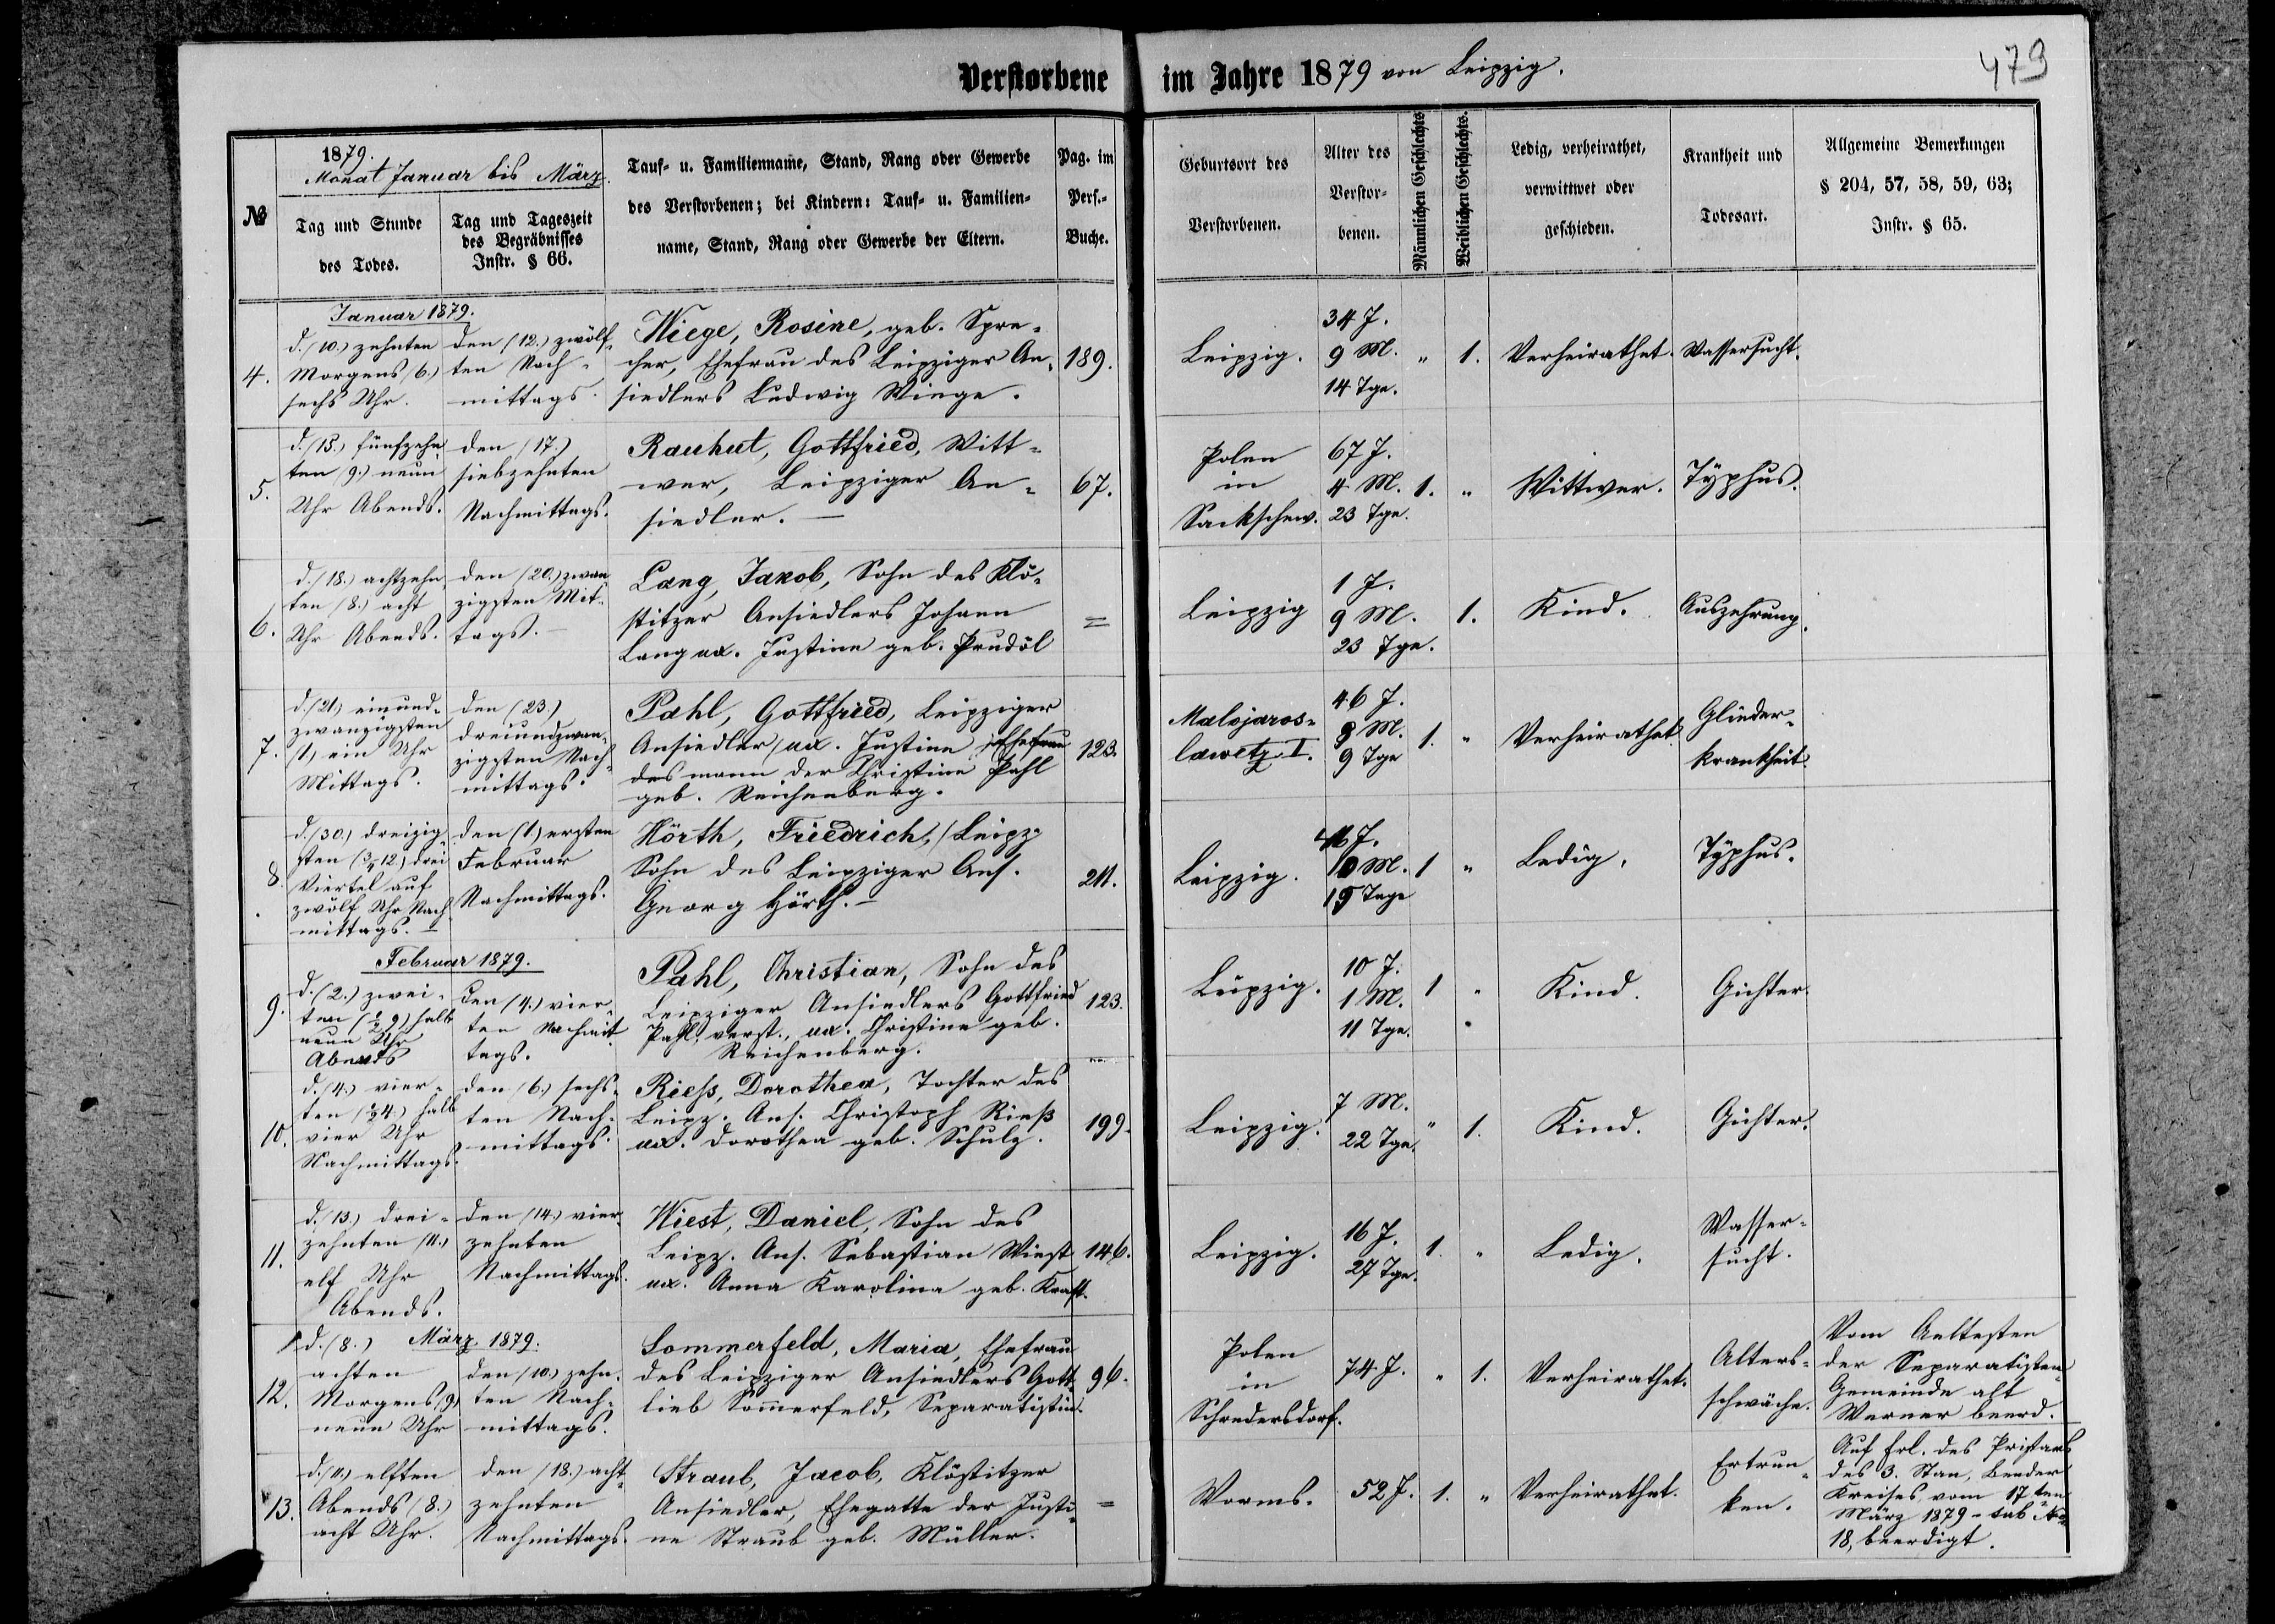 Verstorbene im Jahre 1879 von Leipzig.
479
№
1879.
Monat Januar bis März.
Tag und Stunde
des Todes.
Tag und Tageszeit
des Begräbnisses
Instr. § 66.
Tauf- u. Familienname, Stand, Rang oder Gewerbe
des Verstorbenen; bei Kindern: Tauf- u. Familien-
name, Stand, Rang oder Gewerbe der Eltern.
Pag. im
Pers.-
Buche.
Geburtsort des
Verstorbenen.
Alter des
Verstor-
benen.
Männlichen Geschlechts
Weiblichen Geschlechts.
Ledig, verheirathet,
verwittwet oder
geschieden.
Krankheit und
Todesart.
Allgemeine Bemerkungen
§ 204, 57, 58, 59, 63;
Instr. § 65.
Januar 1879.
4.
d. (10.) zehnten
Morgens (6.)
sechs Uhr.
den (12.) zwölf-
ten Nach-
mittags.
Wiege, Rosine, geb. Spre-
cher, Ehefrau des Leipziger An-
siedlers Ludwig Wiege.
189.
Leipzig.
34 J.
9 M.
14 Tge.
" 1.
Verheirathet.
Wassersucht.
5.
d. (15.) fünfzehn-
ten (9.) neun
Uhr Abends.
den (17.)
siebzehnten
Nachmittags.
Rauhut, Gottfried, Witt-
wer, Leipziger An-
siedler. —
67.
Polen
in
Sackschew.
67 J.
4 M.
23 Tge.
1. "
Wittwer.
Typhus.
6.
d. (18.) achtzehn-
ten (8.) acht
Uhr Abends.
den (20.) zwan-
zigsten Mit-
tags. —
Lang, Jakob, Sohn des Klö-
stitzer Ansiedlers Johann
Lang ux. Justine geb. Prudöl
=
Leipzig
1 J.
9 M.
23 Tge.
1.
Kind.
Auszehrung.
7.
d. (21.) einund-
zwanzigsten
(1) ein Uhr
Mittags.
den (23.)
dreiundzwan-
zigsten Nach-
mittags.
Pahl, Gottfried, Leipziger
Ansiedler, ux. Justine Ehefrau
des mann der Christine Pahl
geb. Reichenberg.
123.
Malojaros-
lawetz I.
46 J.
8 M.
9 Tge
1. "
Verheirathet.
Glieder-
krankheit.
8.
d. (30.) dreizig-
sten (3/4 12.) drei
Viertel auf
zwölf Uhr Nach
mittags. —
den (1.) ersten
Februar
Nachmittags.
Hörth, Friedrich, (Leipz.
Sohn des Leipziger Ans.
Georg Hörth. —
211.
Leipzig.
10 M.
15 Tage
1 "
Ledig.
Typhus.
Februar 1879.
9.
d. (2.) zwei-
ten (1/2 9) halb
neun Uhr
Abends
den (4.) vier-
ten Nachmit
tags.
Pahl, Christian, Sohn des
Leipziger Ansiedlers Gottfried
Pahl verst., ux. Christine geb.
Reichenberg.
123.
Leipzig.
10 J.
1 M.
11 Tge.
1 "
Kind.
Gichter.
10.
d. (4.) vier-
ten (1/2 4.) halb
vier Uhr
Nachmittags.
den (6.) sechs-
ten Nach-
mittags.
Riess, Dorothea, Tochter des
Leipz. Ans. Christoph Rieß
ux. Dorothea geb. Schulz.
199.
Leipzig.
7 M.
22 Tge.
" 1.
Kind.
Gichter.
11.
d. (13.) drei-
zehnten (11.)
elf Uhr
Abends.
den (14.) vier-
zehnten
Nachmittags.
Wiest, Daniel, Sohn des
Leipz. Ans. Sebastian Wiest
ux. Anna Karolina geb. Kraft.
146.
Leipzig.
16 J.
27 Tge.
1. "
Ledig.
Wasser-
sucht.
März 1879.
12.
d. (8.)
achten
Morgens (9)
neun Uhr
den (10.) zehn-
ten Nach-
mittags.
Sommerfeld, Maria, Ehefrau
des Leipziger Ansiedlers Gott-
lieb Sommerfeld, Separatistin.
96.
Polen
in
Schredersdorf.
74 J.
" 1.
Verheirathet.
Alters-
schwäche.
Vom Aeltesten
der Separatisten-
Gemeinde alt
Werner beerd.
13.
d. (11.) elften
Abends (8.)
acht Uhr.
den (18.) acht-
zehnten
Nachmittags.
Straub, Jacob, Klöstitzer
Ansiedler, Ehegatte der Justi-
ne Straub geb. Müller.
=
Worms.
52 J.
1. "
Verheirathet.
Ertrun-
ken.
Auf Erl. des Pristavs
des 3. Stan, Bender
Kreises, vom 17ten
März 1879 - sub No
18, beerdigt.